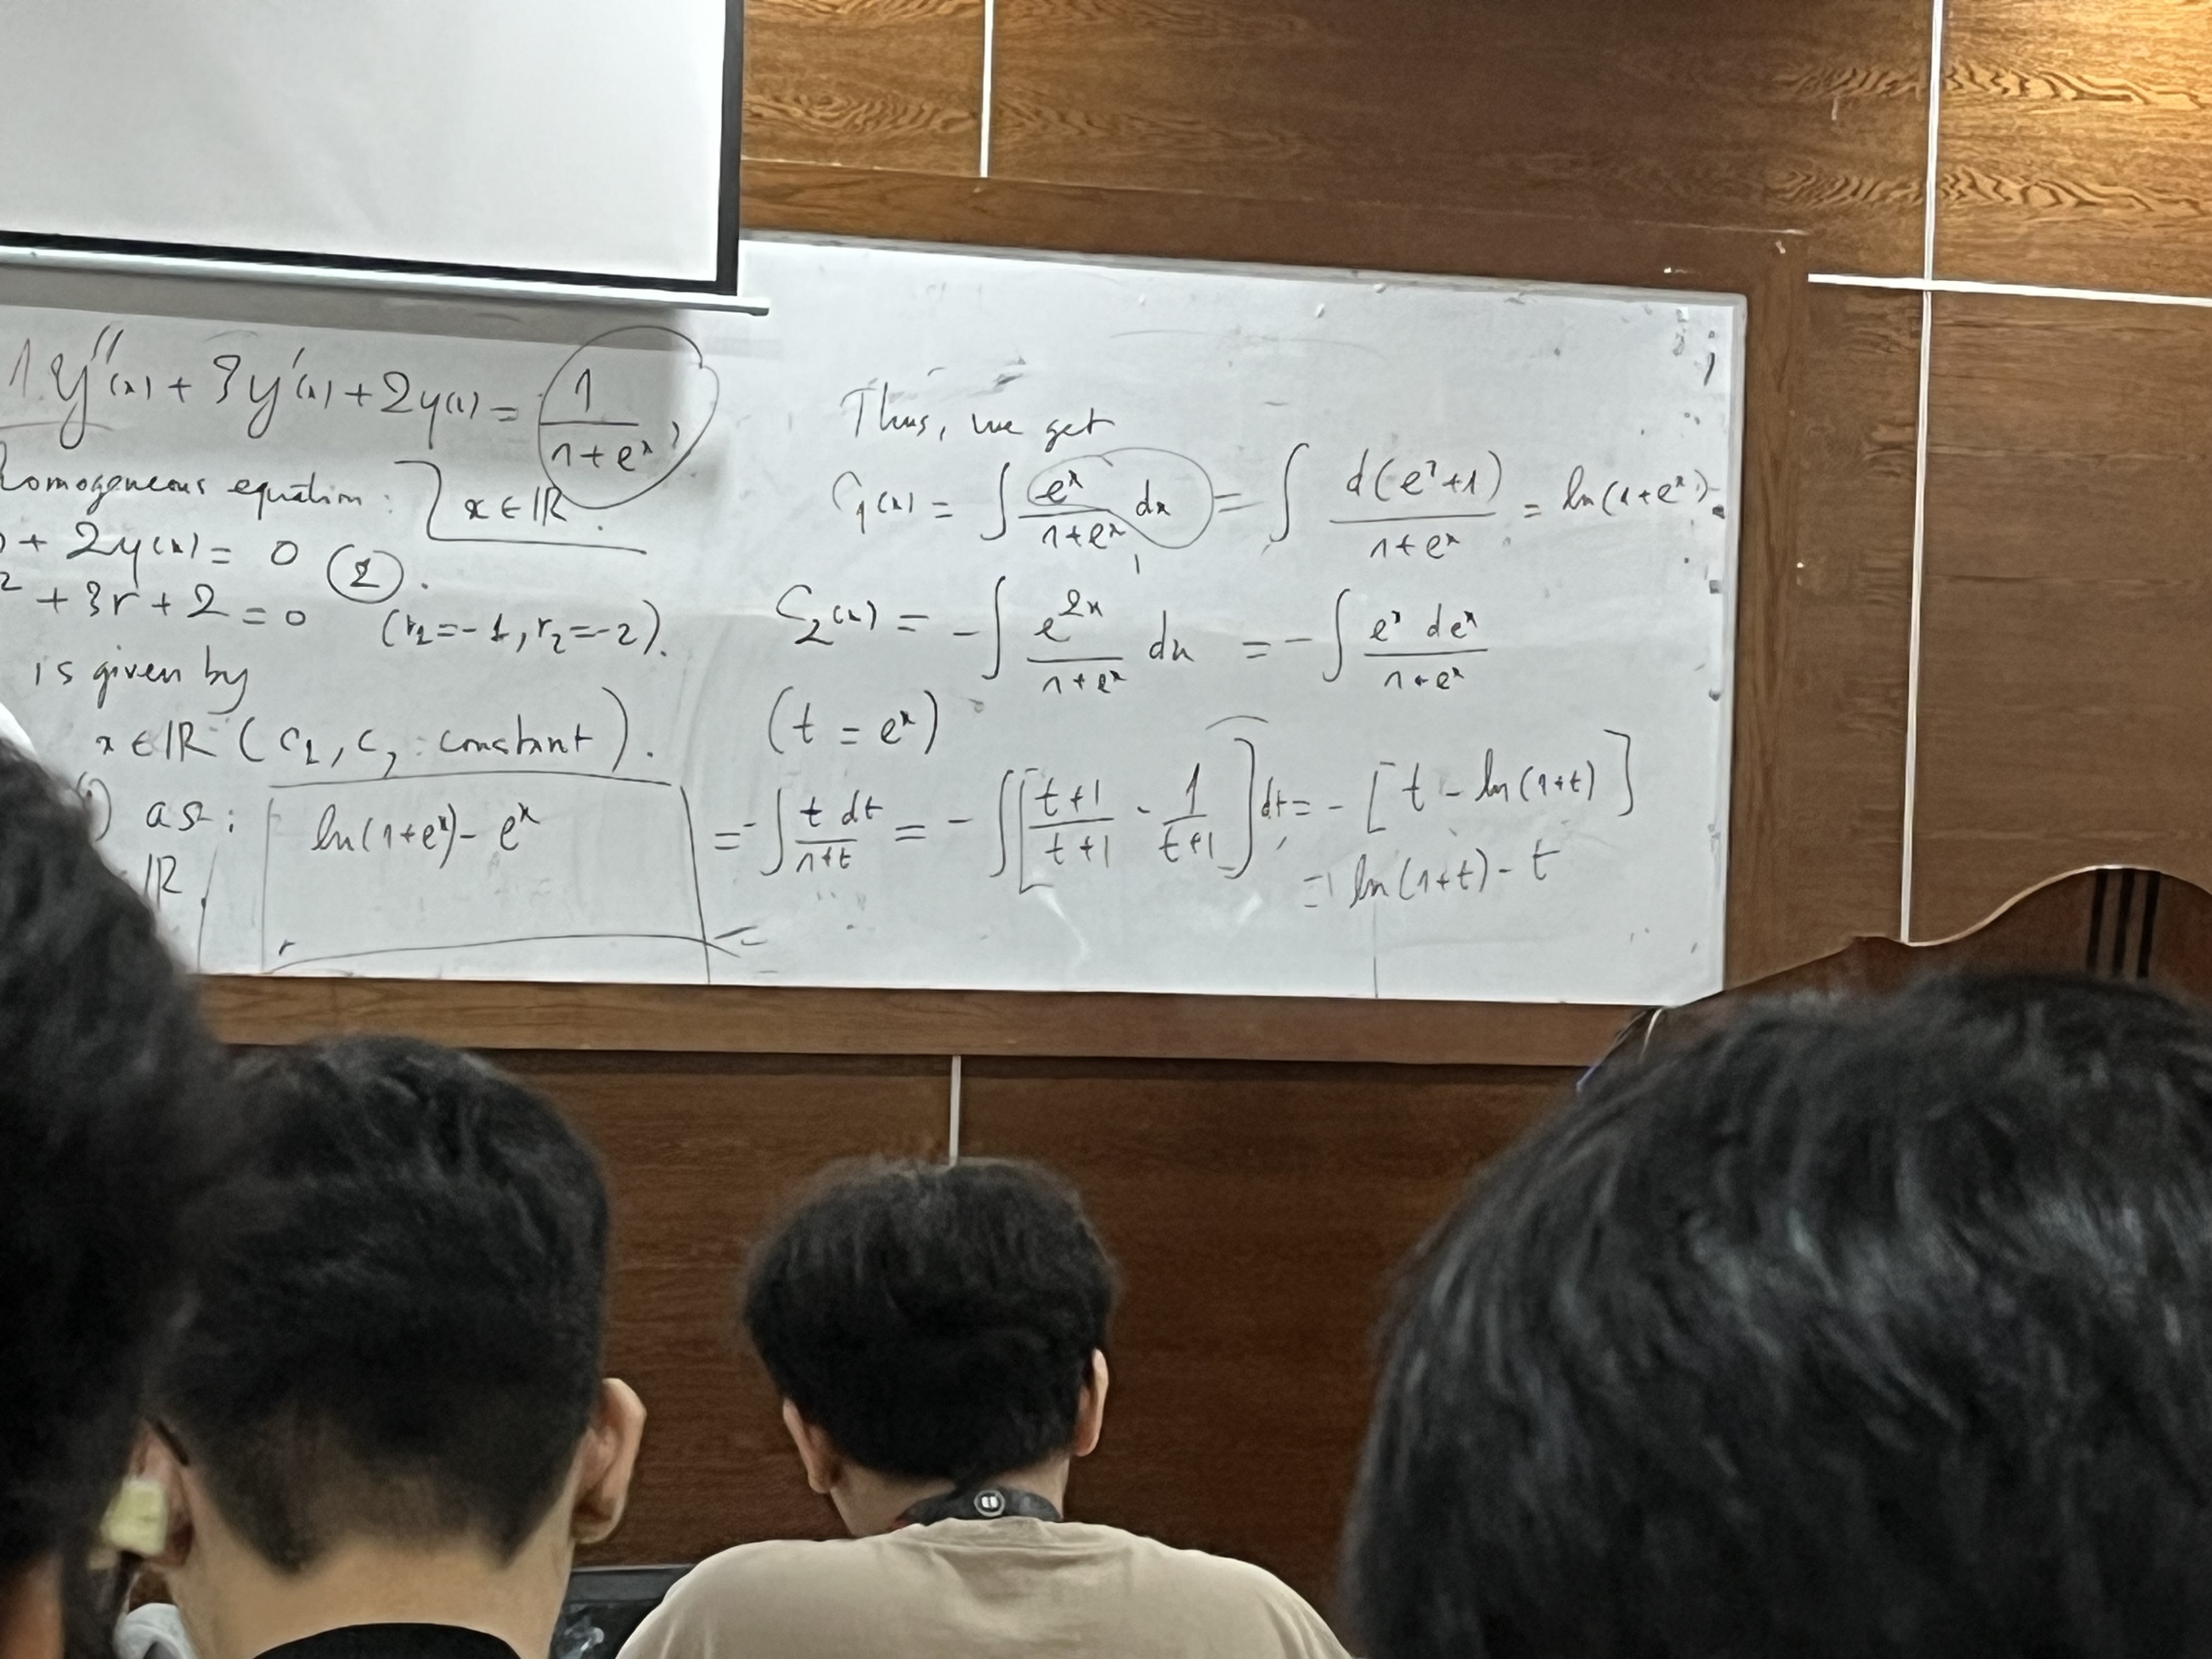 1y''(x) + 3y'(x) + 2y(x) = 1/(1+e^x),
homogeneous equation: x ∈ ℝ.
+ 2y(x) = 0 (2).
² + 3r + 2 = 0 (r₁=-1, r₂=-2).
is given by
x ∈ ℝ (c₁, c₂ : constant).
as:
ln(1+e^x) - e^x
ℝ.
Thus, we get
C₁(x) = ∫ e^x/(1+e^x) dx = ∫ d(e^x+1)/(1+e^x) = ln(1+e^x)
C₂(x) = -∫ e^{2x}/(1+e^x) dx = -∫ e^x de^x/(1+e^x)
(t = e^x)
= -∫ t dt/(1+t) = -∫ [(t+1)/(t+1) - 1/(t+1)] dt = -[t - ln(1+t)]
= ln(1+t) - t